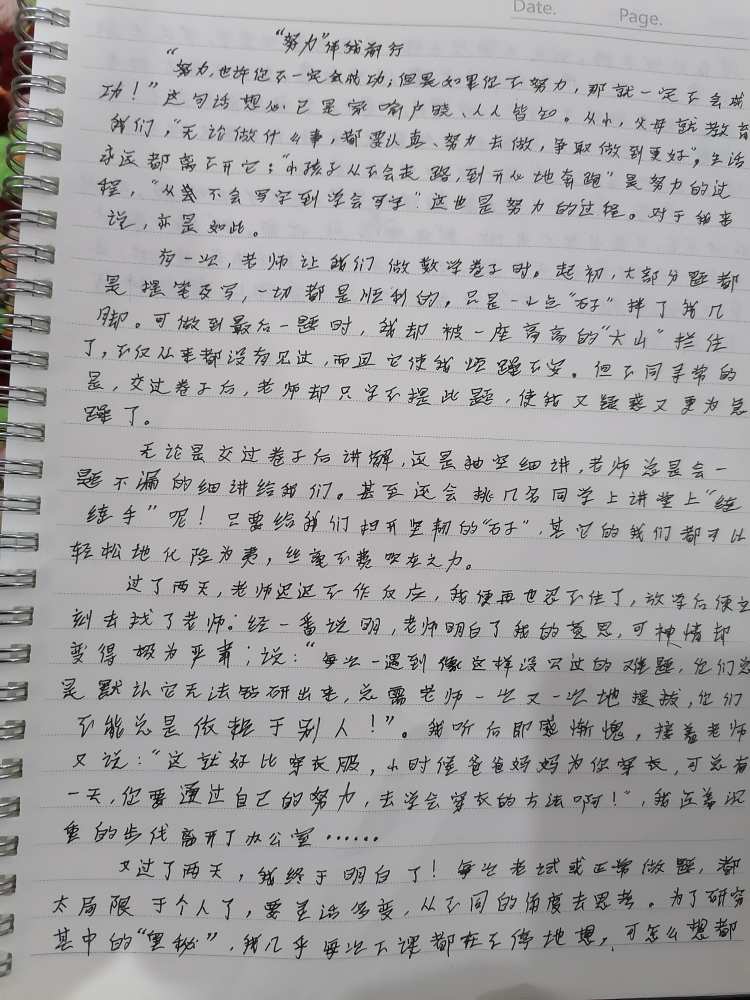 Date.
Page.
“努力”伴我前行
“努力,也许但不一定会成功;但是如果但不努力,那就一定不会成
功!”这句话想必已是家喻户晓、人人皆知。从小,父母就教育
我们,“无论做什么事,都要认真、努力去做,争取做到更好”。生活
永远都离不开它:“小孩子从不会走路,到开心地奔跑”是努力的过
程,“从不会写字到学会写字”这也是努力的过程。对于我来
说,亦是如此。
有一次,老师让我们做数学卷子时。起初,大部分题都
是提笔及写,一切都是顺利的。只是一小点“石子”拌了我几
脚。可做到最后一题时,我却被一座高高的“大山”拦住
了,不仅从来都没有见过,而且它使我烦躁不安。但不同寻常的
是,交过卷子后,老师却只字不提此题,使我又疑惑又更为急
躁了。
无论是交过卷子后讲解,还是抽空细讲,老师总是会一
题不漏的细讲给我们。甚至还会挑几名同学上讲堂上“练
练手”呢!只要给我们扫开坚韧的“石子”,其它的我们都才比
轻松地化险为夷,丝毫不费吹灰之力。
过了两天,老师迟迟不作反应,我便再也忍不住了,放学后便立
刻去找了老师。经一番说明,老师明白了我的意思,可神情却
变得极为严肃;说:“每次一遇到像这样没见过的难题,你们总
是默认它无法钻研出来,总需老师一次又一次地提拔,你们
不能总是依赖于别人!”。我听后即感惭愧,接着老师
又说:“这就好比穿衣服,小时侯爸爸妈妈为你穿衣,可总有
一天,你要通过自己的努力,去学会穿衣的方法啊!”,我迈着沉
重的步伐离开了办公室……
又过了两天,我终于明白了!每次考试或正常做题,都
太局限于个人了,要灵活多变,从不同的角度去思考。为了研究
其中的“奥秘”,我几乎每次下课都在不停地想,可怎么想都